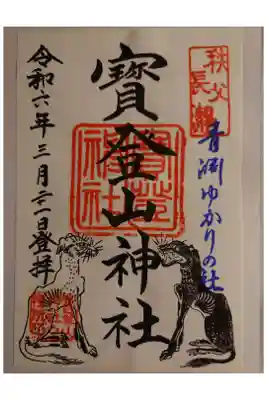 秩父
長瀞
青淵ゆかりの社
寳登山神社
寳登山
神社
令和六年三月二十一日登拝